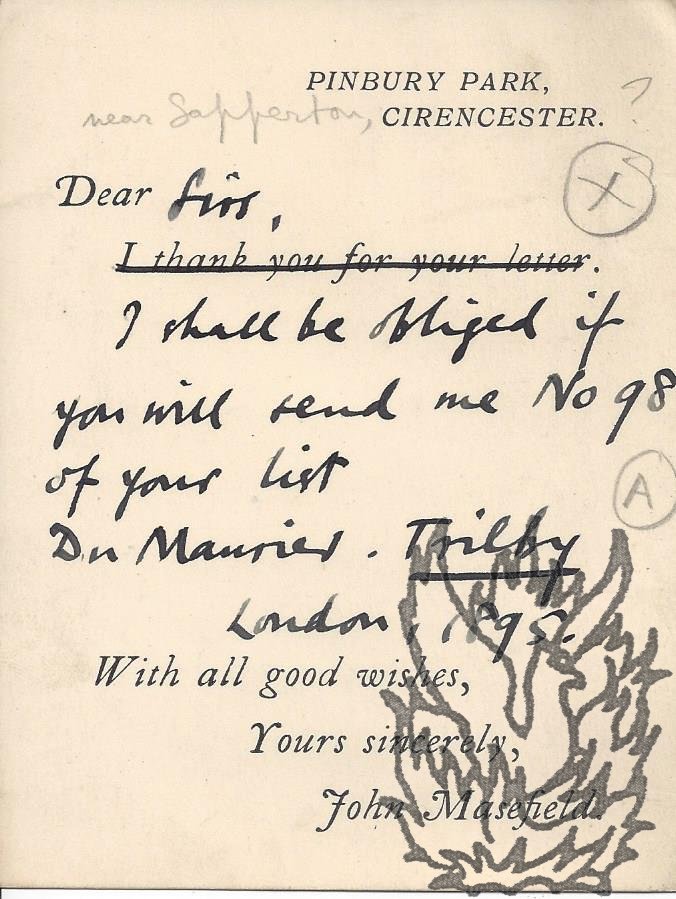 PINBURY PARK,
near Sapperton, CIRENCESTER. ?
X
Dear Sirs,
I thank you for your letter.
I shall be obliged if
you will send me No 98
of your list
A
Du Maurier. Trilby
London, 1895.
With all good wishes,
Yours sincerely,
John Masefield.